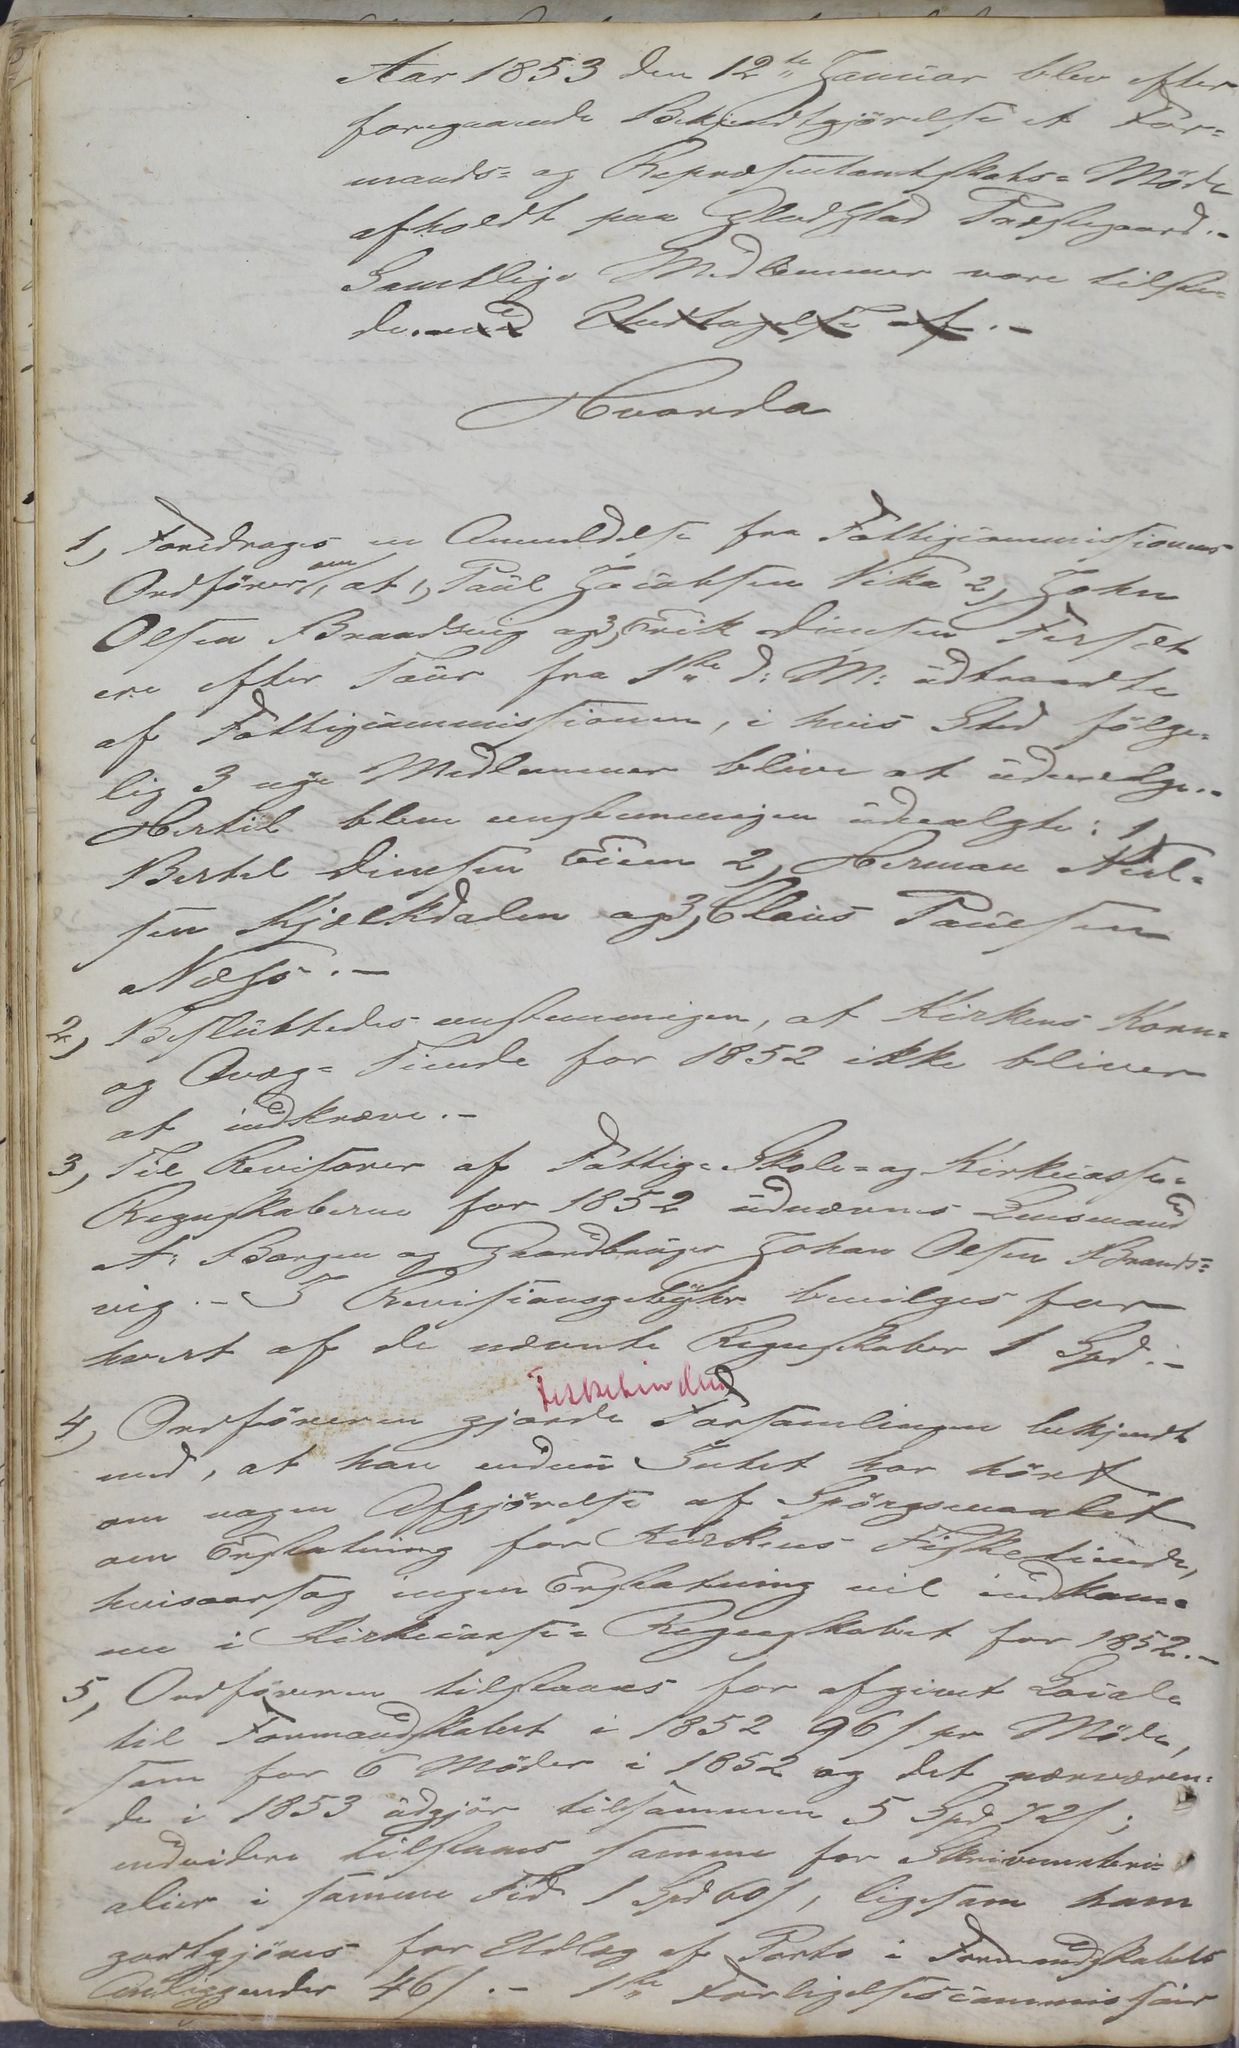 Aar 1853 den 12te Januar blev efter
foregaaende Bekjendtgjörelse et For-
mands- og Repræsentantskabs-Möde
afholdt paa Gladstad Præstegaard.-
Samtlige Medlemmer vare tilste-
de. med Undtagelse af .-
Hvorda
1, Foredroges en Anmeldelse fra Fattigcommissionens
Ordförer, om, at 1, Paul Jacobsen Vika 2, John
Olsen Brandsvig og 3, Erik Dinesen
ere efter Tour fra 1ste d: M: udtraadte
af Fattigcommissionen, i hvis Sted fölge-
lig 3 nye Medlemmer blive at udvælge.-
Hertil bleve enstemmigen udvalgte: 1,
Bertel Dinesen 2, Herman Niel-
sen Kjælkdalen og 3, Claus Paulsen
Næss.-
2, Besluttedes enstemmigen, at Kirkens Korn-
og Qvæg-Tiende for 1852 ikke bliver
at indkræve.-
3, Til Revisorer af Fattig- Skole- og Kirkecasse-
Regnskaberne for 1852 udnævnes Lensmand
A. Borgen og Gaardbruger Johan Olsen Brands-
vig.- I Revisionsgebyhr bevilges for
hvert af de nævnte Regnskaber 1 Spd.-
Fisketienden
4, Ordföreren gjorde Forsamlingen bekjendt
med, at han endnu Intet har hört
om nogen Afgjörelse af Spörgsmaalet
om Erstatning for Kirkens Fisketiende,
hvisaarsag ingen Erstatning vil indkom-
me i Kirkecasse-Regnskabet for 1852.-
5, Ordföreren tilstaaes for afgivet Locale
til Formandskabet i 1852 96 s pr Möde,
som for 6 Möder i 1852 og det nærværen-
de i 1853 udgjör tilsammen 5 Spd 72 s;
endvidere tilstaaes samme for Skrivemateri-
alier i samme Tid 1 Spd 60 s, ligesom ham
godtgjöres for Udlæg af Porto i Formandskabets
Anliggender 46 s.- 1ste Forligelsescommissair